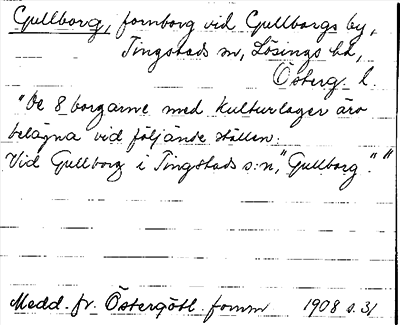 Gullborg, fornborg vid Gullborgs by,
Tingstads sn, Lösings hd,
Österg. l.
"De 8 borgarne med kulturlager äro
belägna vid följande ställen:
Vid Gullborg i Tingstads s:n, "Gullborg"."
Medd. fr. Östergötl. fornm 1908 s. 31